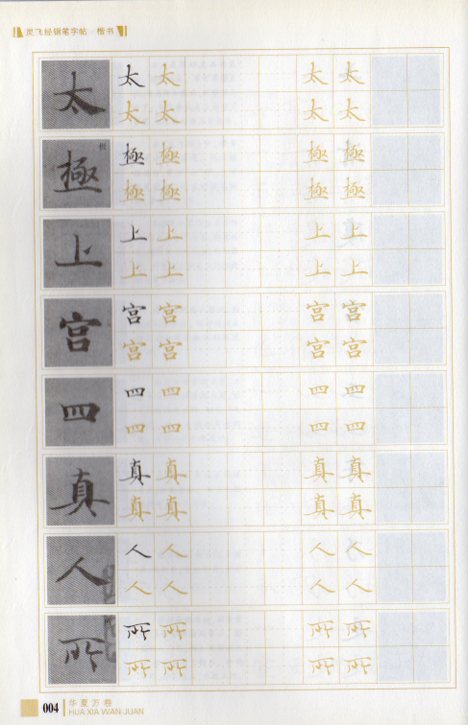 灵飞经钢笔字帖 楷书
太 太 太 太 太
太 太 太 太
極 极 極 極 極 極
極 極 極 極
上 上 上 上 上
上 上 上 上
宫 宫 宫 宫 宫
宫 宫 宫 宫
四 四 四 四 四
四 四 四 四
真 真 真 真 真
真 真 真 真
人 人 人 人 人
人 人 人 人
所 所 所 所 所
所 所 所 所
004 华夏万卷
HUA XIA WAN JUAN